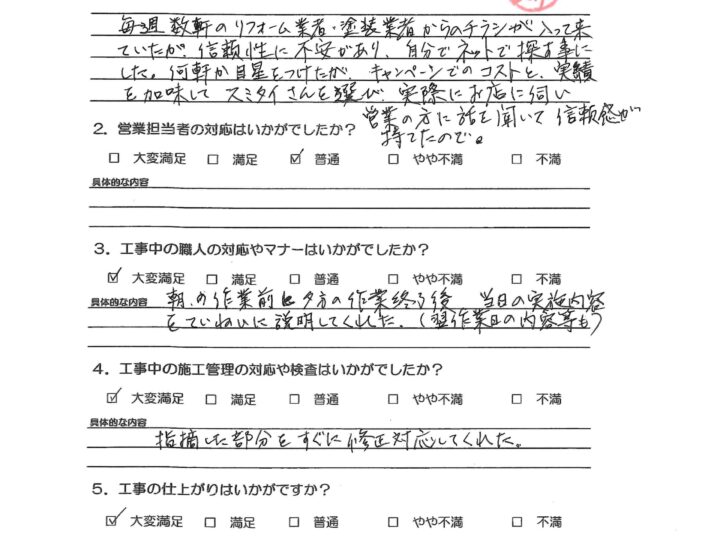 毎週数軒のリフォーム業者・塗装業者からのチラシが入って来
ていたが、信頼性に不安があり、自分でネットで探す事に
した。何軒か目星をつけたが、キャンペーンでのコストと、実績
を加味してスミタイさんを選び、実際にお店に伺い
営業の方に話を聞いて信頼感が
持てたので。
2．営業担当者の対応はいかがでしたか？
□ 大変満足 □ 満足 ☑ 普通 □ やや不満 □ 不満
具体的な内容
3．工事中の職人の対応やマナーはいかがでしたか？
☑ 大変満足 □ 満足 □ 普通 □ やや不満 □ 不満
具体的な内容 朝の作業前と夕方の作業終了後 当日の実施内容
をていねいに説明してくれた。（翌作業日の内容等も）
4．工事中の施工管理の対応や検査はいかがでしたか？
☑ 大変満足 □ 満足 □ 普通 □ やや不満 □ 不満
具体的な内容
指摘した部分をすぐに修正対応してくれた。
5．工事の仕上がりはいかがですか？
☑ 大変満足 □ 満足 □ 普通 □ やや不満 □ 不満